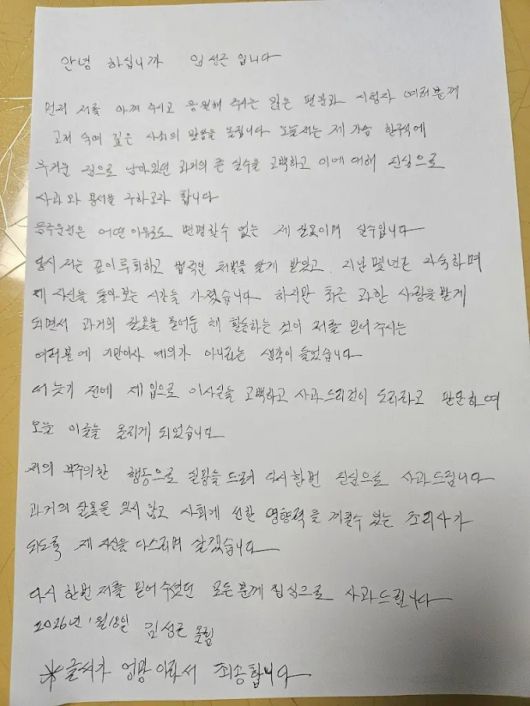 안녕 하십니까 임성근 입니다
먼저 저를 아껴 주시고 응원해 주시는 많은 팬분과 시청자 여러분께
고개 숙여 깊은 사죄의 말씀을 올립니다 오늘 저는 제 가슴 한구석에
무거운 짐으로 남아있던 과거의 큰 실수를 고백하고 이에 대해 진심으로
사과와 용서를 구하고자 합니다
음주운전은 어떤 이유로도 변명할수 없는 제 잘못이며 실수입니다
당시 저는 깊이 후회하고 법적인 처벌을 달게 받았고 지난 몇년간 자숙하며
제 자신을 돌아 보는 시간을 가졌습니다 하지만 최근 과한 사랑을 받게
되면서 과거의 잘못을 묻어둔 채 활동하는 것이 저를 믿어 주시는
여러분에 기만이자 예의가 아니라는 생각이 들었습니다
더 늦기 전에 제 입으로 이사실을 고백하고 사과드리것이 도리라고 판단하여
오늘 이글을 올리게 되었습니다
저의 부주의한 행동으로 실망을 드려 다시한번 진심으로 사과드립니다
과거의 잘못을 잊지 않고 사회에 선한 영향력을 끼칠수 있는 조리사가
되도록 제 자신을 다스리며 살겠습니다
다시 한번 저를 믿어 주셨던 모든 분께 진심으로 사과드립니다
2026년 1월 18일 임성근 올림
*글씨가 엉망이라서 죄송합니다